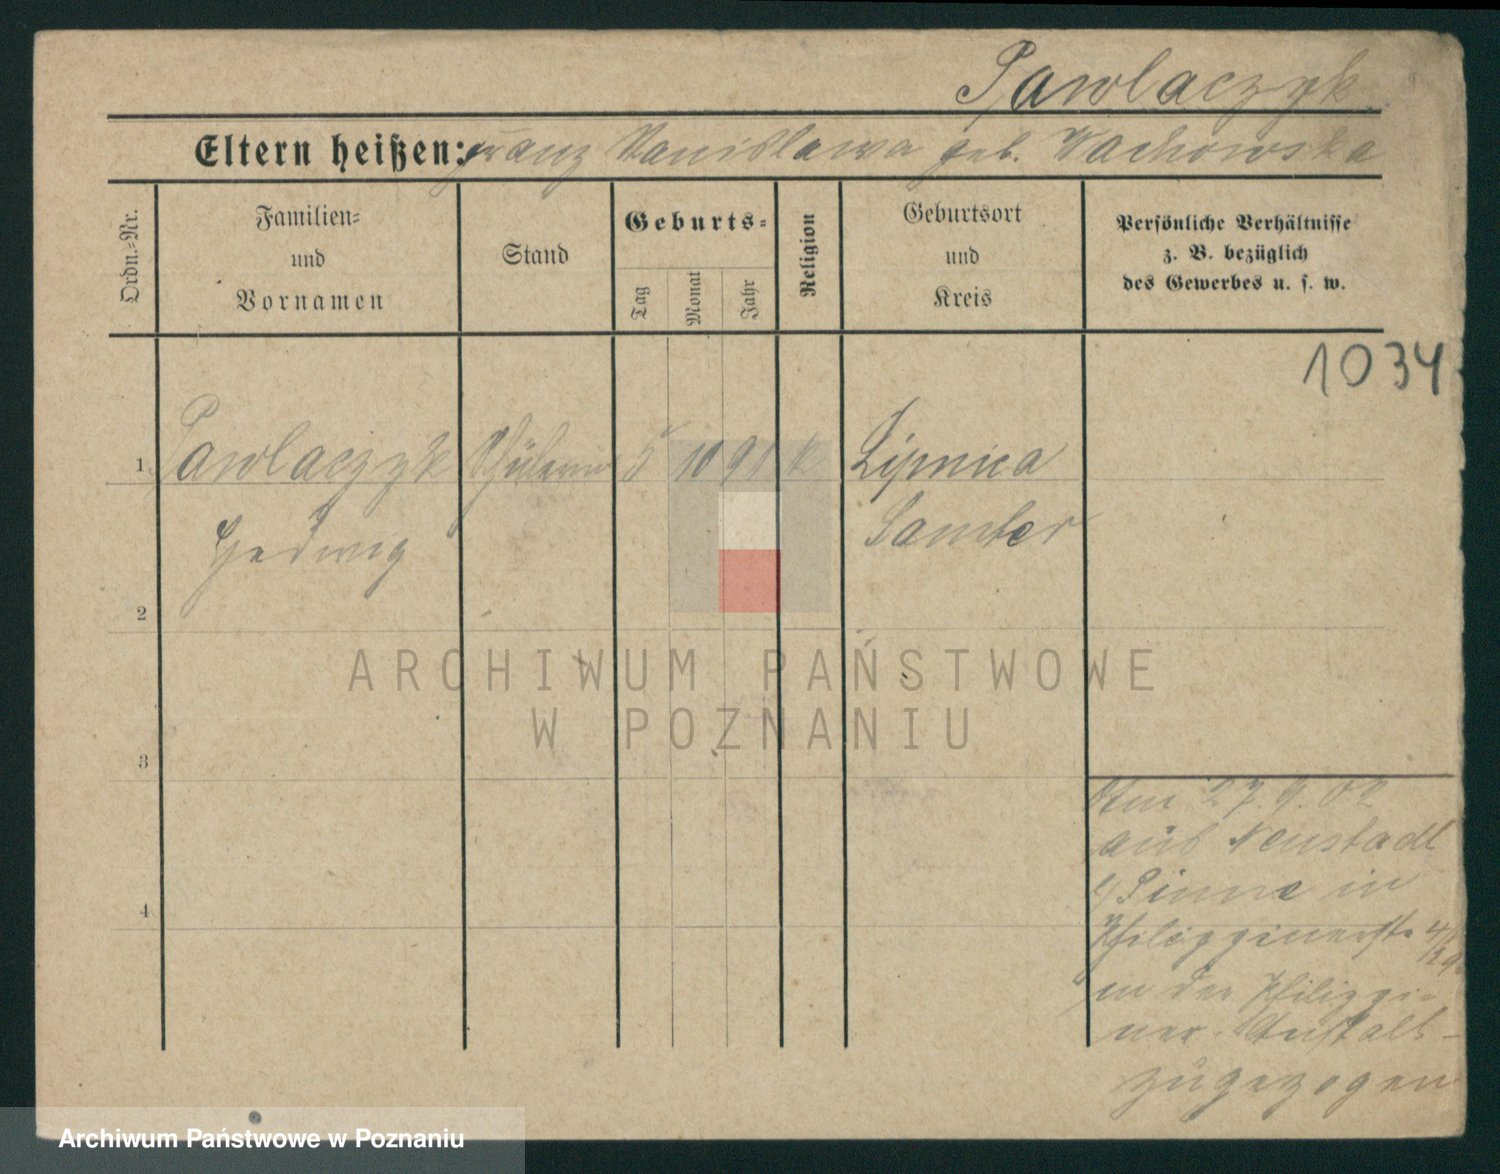 Pawlaczyk
Eltern heißen: Franz Stanislawa geb. Wachowska
Ordn.-Nr.
Familien-
und
Vornamen
Stand
Geburts-
Tag
Monat
Jahr
Religion
Geburtsort
und
Kreis
Persönliche Verhältnisse
z. B. bezüglich
des Gewerbes u. s. w.
1034
1 Pawlaczyk Schülerin 5 10 91 k Lipnica
Hedwig Samter
2
ARCHIWUM PAŃSTWOWE
W POZNANIU
3
Am 27.9.02
aus Neustadt
b/Pinne in
Philippinerstr 4/5
in der Philippi-
ner-Anstalt-
zugezogen
4
Archiwum Państwowe w Poznaniu